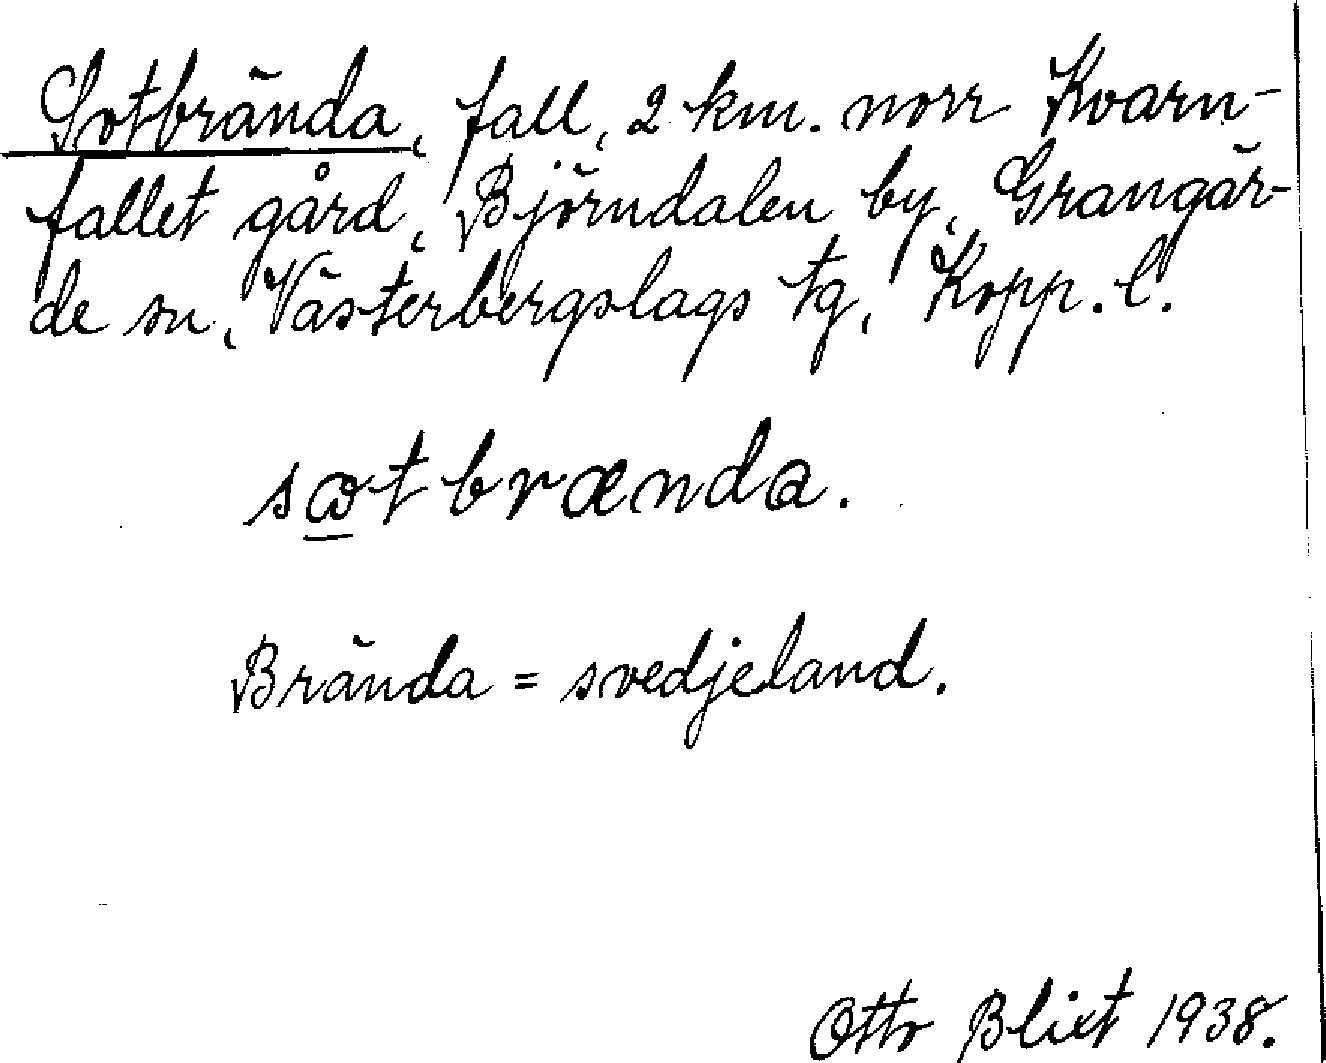 Sotbrända, fall, 2 km. norr Kvarn-
fallet gård, Björndalen by, Grangär-
de sn, Västerbergslags tg, Kopp. l.
sɷtbrænda.
Brända = svedjeland.
Otto Blixt 1938.